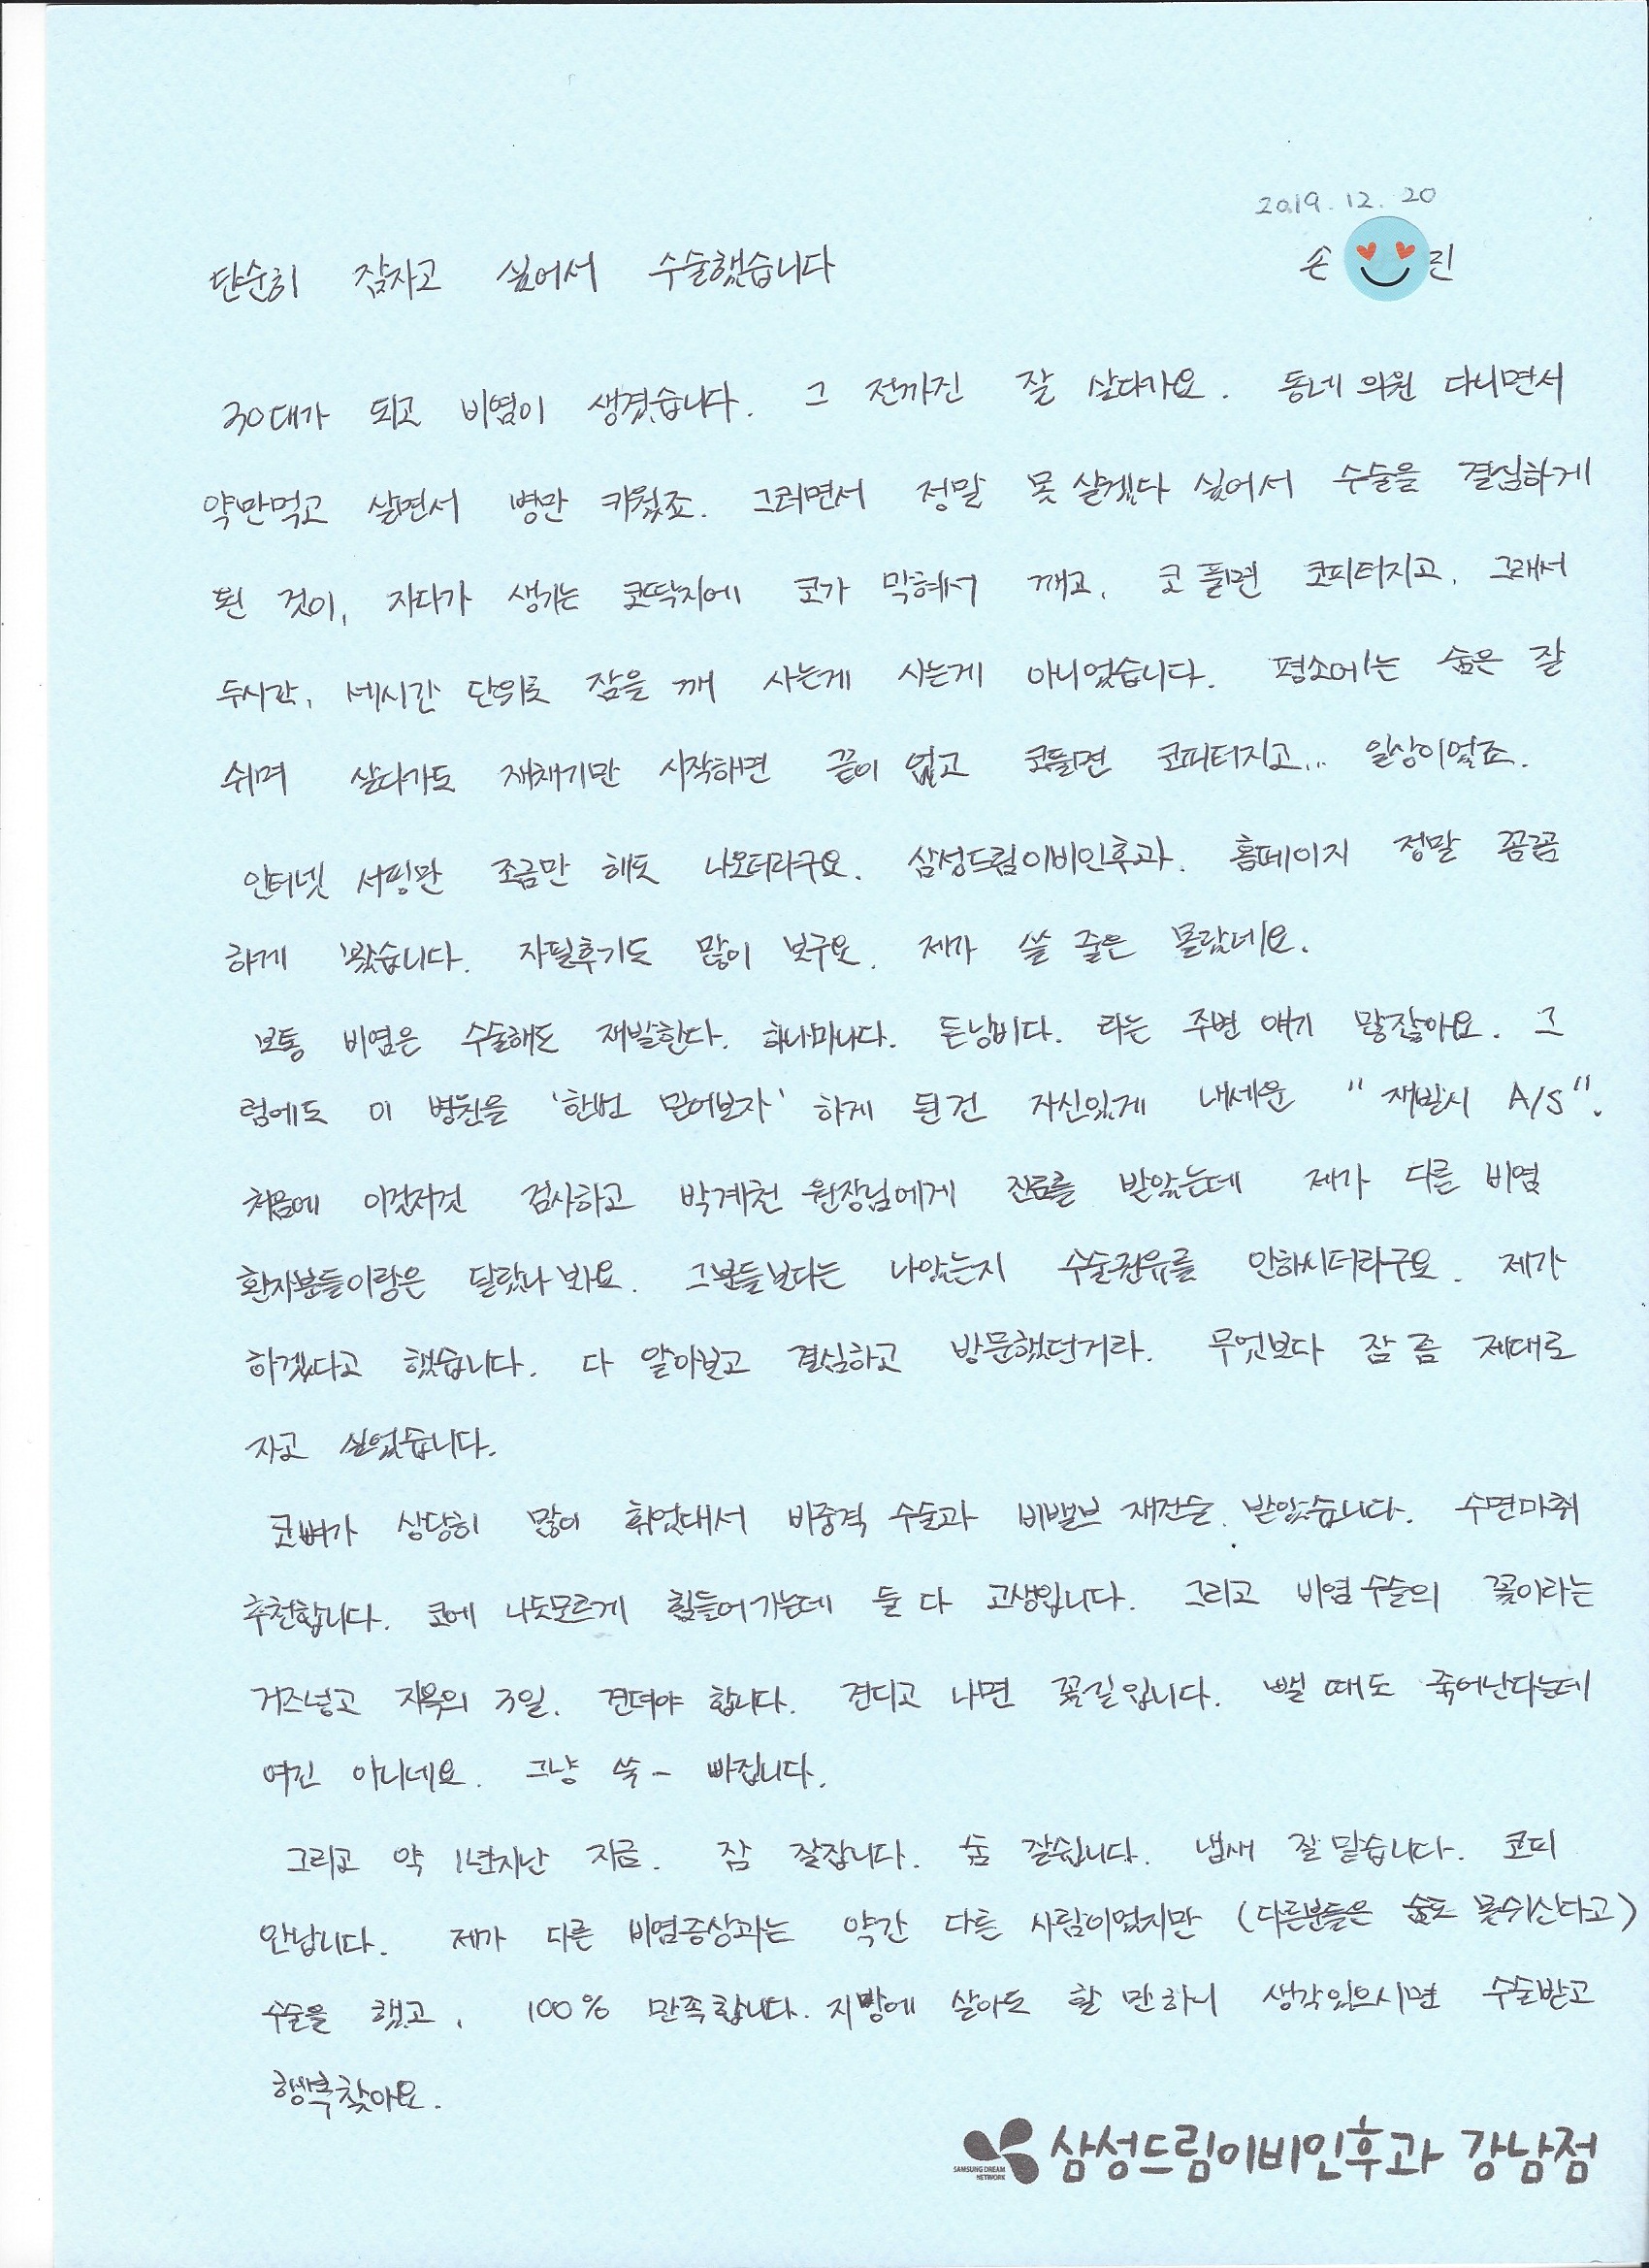 2019. 12. 20
단순히 잠자고 싶어서 수술했습니다 손 린
30대가 되고 비염이 생겼습니다. 그 전까진 잘 살다가요. 동네 의원 다니면서
약만먹고 살면서 병만 키웠죠. 그러면서 정말 못 살겠다 싶어서 수술을 결심하게
된 것이, 자다가 생기는 코딱지에 코가 막혀서 깨고, 코 풀면 코피터지고, 그래서
두시간, 세시간 단위로 잠을 깨 사는게 사는게 아니었습니다. 평소에는 숨은 잘
쉬며 살다가도 재채기만 시작하면 끝이 없고 코풀면 코피터지고... 일상이었죠.
인터넷 서핑만 조금만 해도 나오더라구요. 삼성드림이비인후과. 홈페이지 정말 꼼꼼
하게 봤습니다. 자필후기도 많이 보구요. 제가 쓸 줄은 몰랐네요.
보통 비염은 수술해도 재발한다. 하나마나다. 돈낭비다. 라는 주변 얘기 많잖아요. 그
럼에도 이 병원을 '한번 믿어보자' 하게 된건 자신있게 내세운 "재발시 A/S".
처음에 이것저것 검사하고 박계천 원장님에게 진료를 받았는데 제가 다른 비염
환자분들이랑은 달랐나봐요. 그분들보다는 나았는지 수술권유를 안하시더라구요. 제가
하겠다고 했습니다. 다 알아보고 결심하고 방문했던거라. 무엇보다 잠 좀 제대로
자고 싶었습니다.
코뼈가 상당히 많이 휘었대서 비중격 수술과 비밸브 재건술 받았습니다. 수면마취
추천합니다. 코에 나도모르게 힘들어가는데 둘 다 고생입니다. 그리고 비염수술의 꽃이라는
거즈넣고 지옥의 3일. 견뎌야 합니다. 견디고 나면 꽃길입니다. 뺄 때도 죽어난다는데
여긴 아니네요. 그냥 쑥- 빠집니다.
그리고 약 1년지난 지금. 잠 잘잡니다. 숨 잘쉽니다. 냄새 잘 맡습니다. 코피
안납니다. 제가 다른 비염증상과는 약간 다른 사람이었지만 (다른분들은 숨도 못쉬신다고)
수술을 했고, 100% 만족합니다. 지방에 살아도 할 만하니 생각있으시면 수술받고
행복찾아요.
SAMSUNG DREAM NETWORK 삼성드림이비인후과 강남점